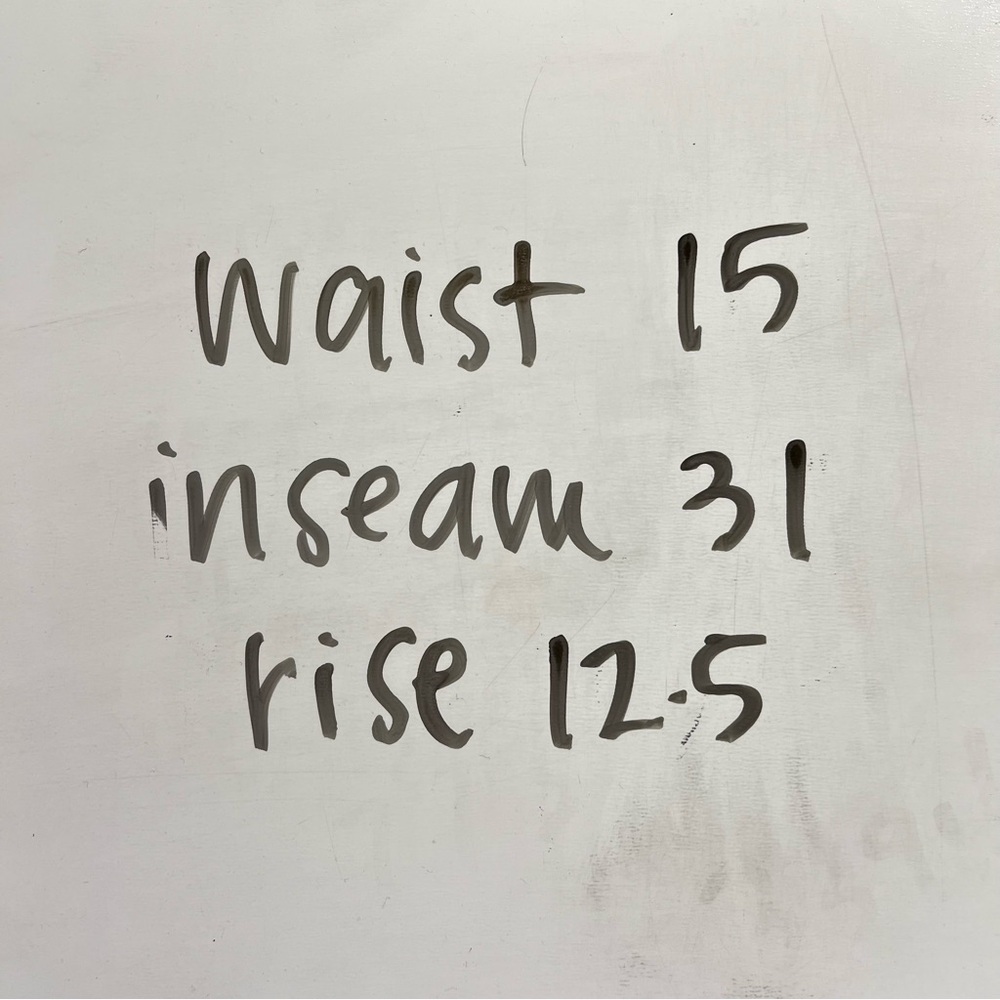 waist 15
inseam 31
rise 12.5